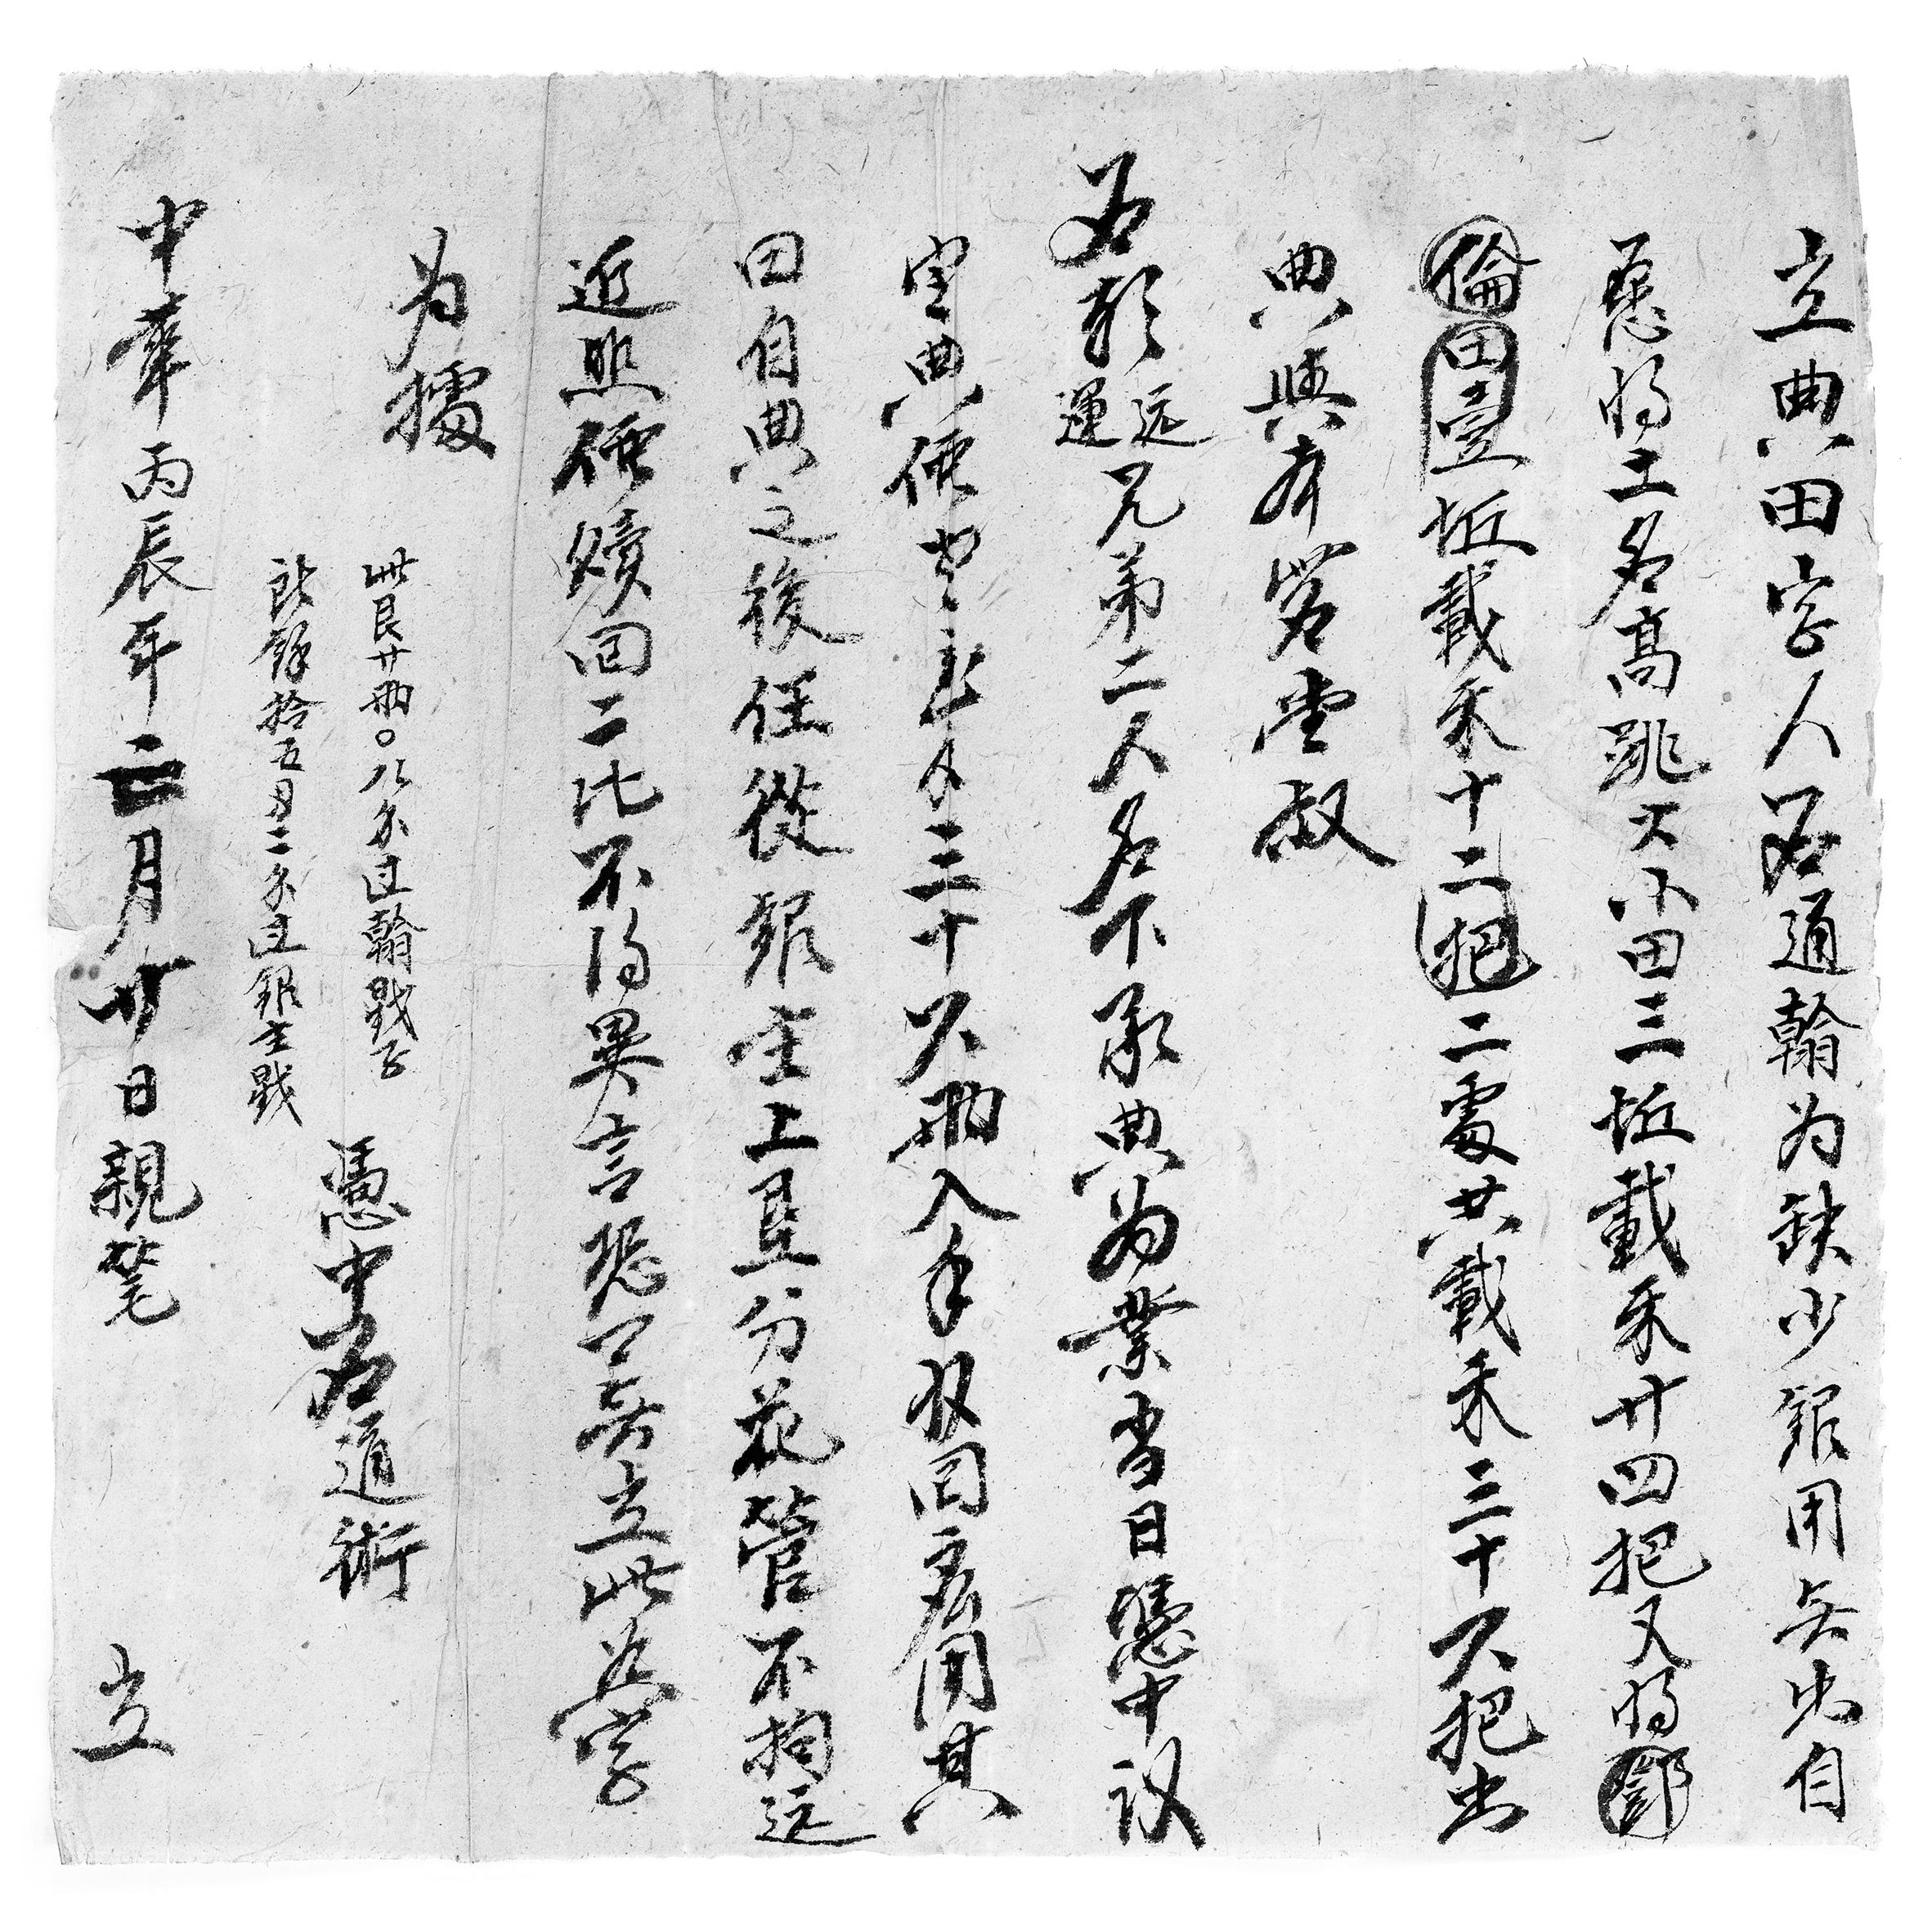 立典田字人石通翰为缺少銀用無出自
愿将土名高跳大小田三坵載禾廿四把又将鄧
倫田壹坵載禾十二把二處共載禾三十六把出
典與本寨堂叔
石彰远運兄弟二人名下承典为業当日憑中议
定典價寸銀三十六兩入手收回應用其
田自典之後任從銀主上田分花管不拘远
近照價贖回二比不得異言恐口無立此為字
为據
此艮廿兩〇八分過翰戥子
此銀拾五月二分過銀主戥
憑中石道術
中華丙辰年二月廿日親筆 立